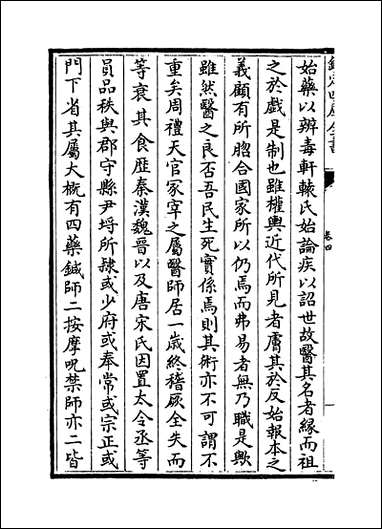 欽定四庫全書
卷四
始藥以辨毒軒轅氏始論疾以詔世故醫其名者緣而祖
之於戲是制也雖權輿近代所見者膚其於反始報本之
義顧有所脗合國家所以仍焉而弗易者無乃職是歟
雖然醫之良否吾民生死實係焉則其術亦不可謂不
重矣周禮天官冢宰之屬醫師居一歲終稽厥全失而
等衰其食歴秦漢魏晉以及唐宋氏因置太令丞等
員品秩與郡守縣尹埒所隷或少府或奉常或宗正或
門下省其屬大槪有四藥鍼師二按摩呪禁師亦二皆